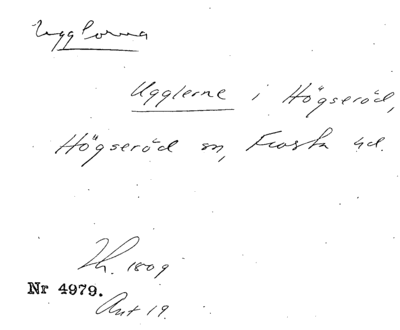 Ugglorna
Ugglerne i Högseröd,
Högseröd sn, Frosta hd.
Th. 1809
Nr 4979.
Ant 19.